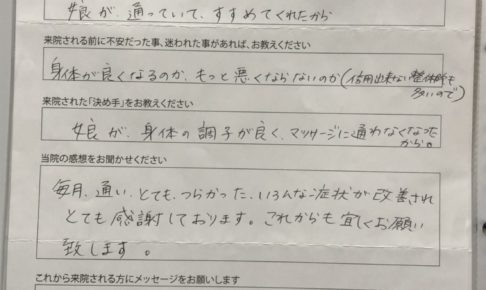 娘が、通っていて、すすめてくれたから
来院される前に不安だった事、迷われた事があれば、お教えください
身体が良くなるのか、もっと悪くならないのか(信用出来ない整体師も
多いので)
来院された「決め手」をお教えください
娘が、身体の調子が良く、マッサージに通わなくなった
から。
当院の感想をお聞かせください
毎月、通い、とても、つらかった、いろんな症状が改善され
とても感謝しております。これからも宜しくお願い
致します。
これから来院される方にメッセージをお願いします